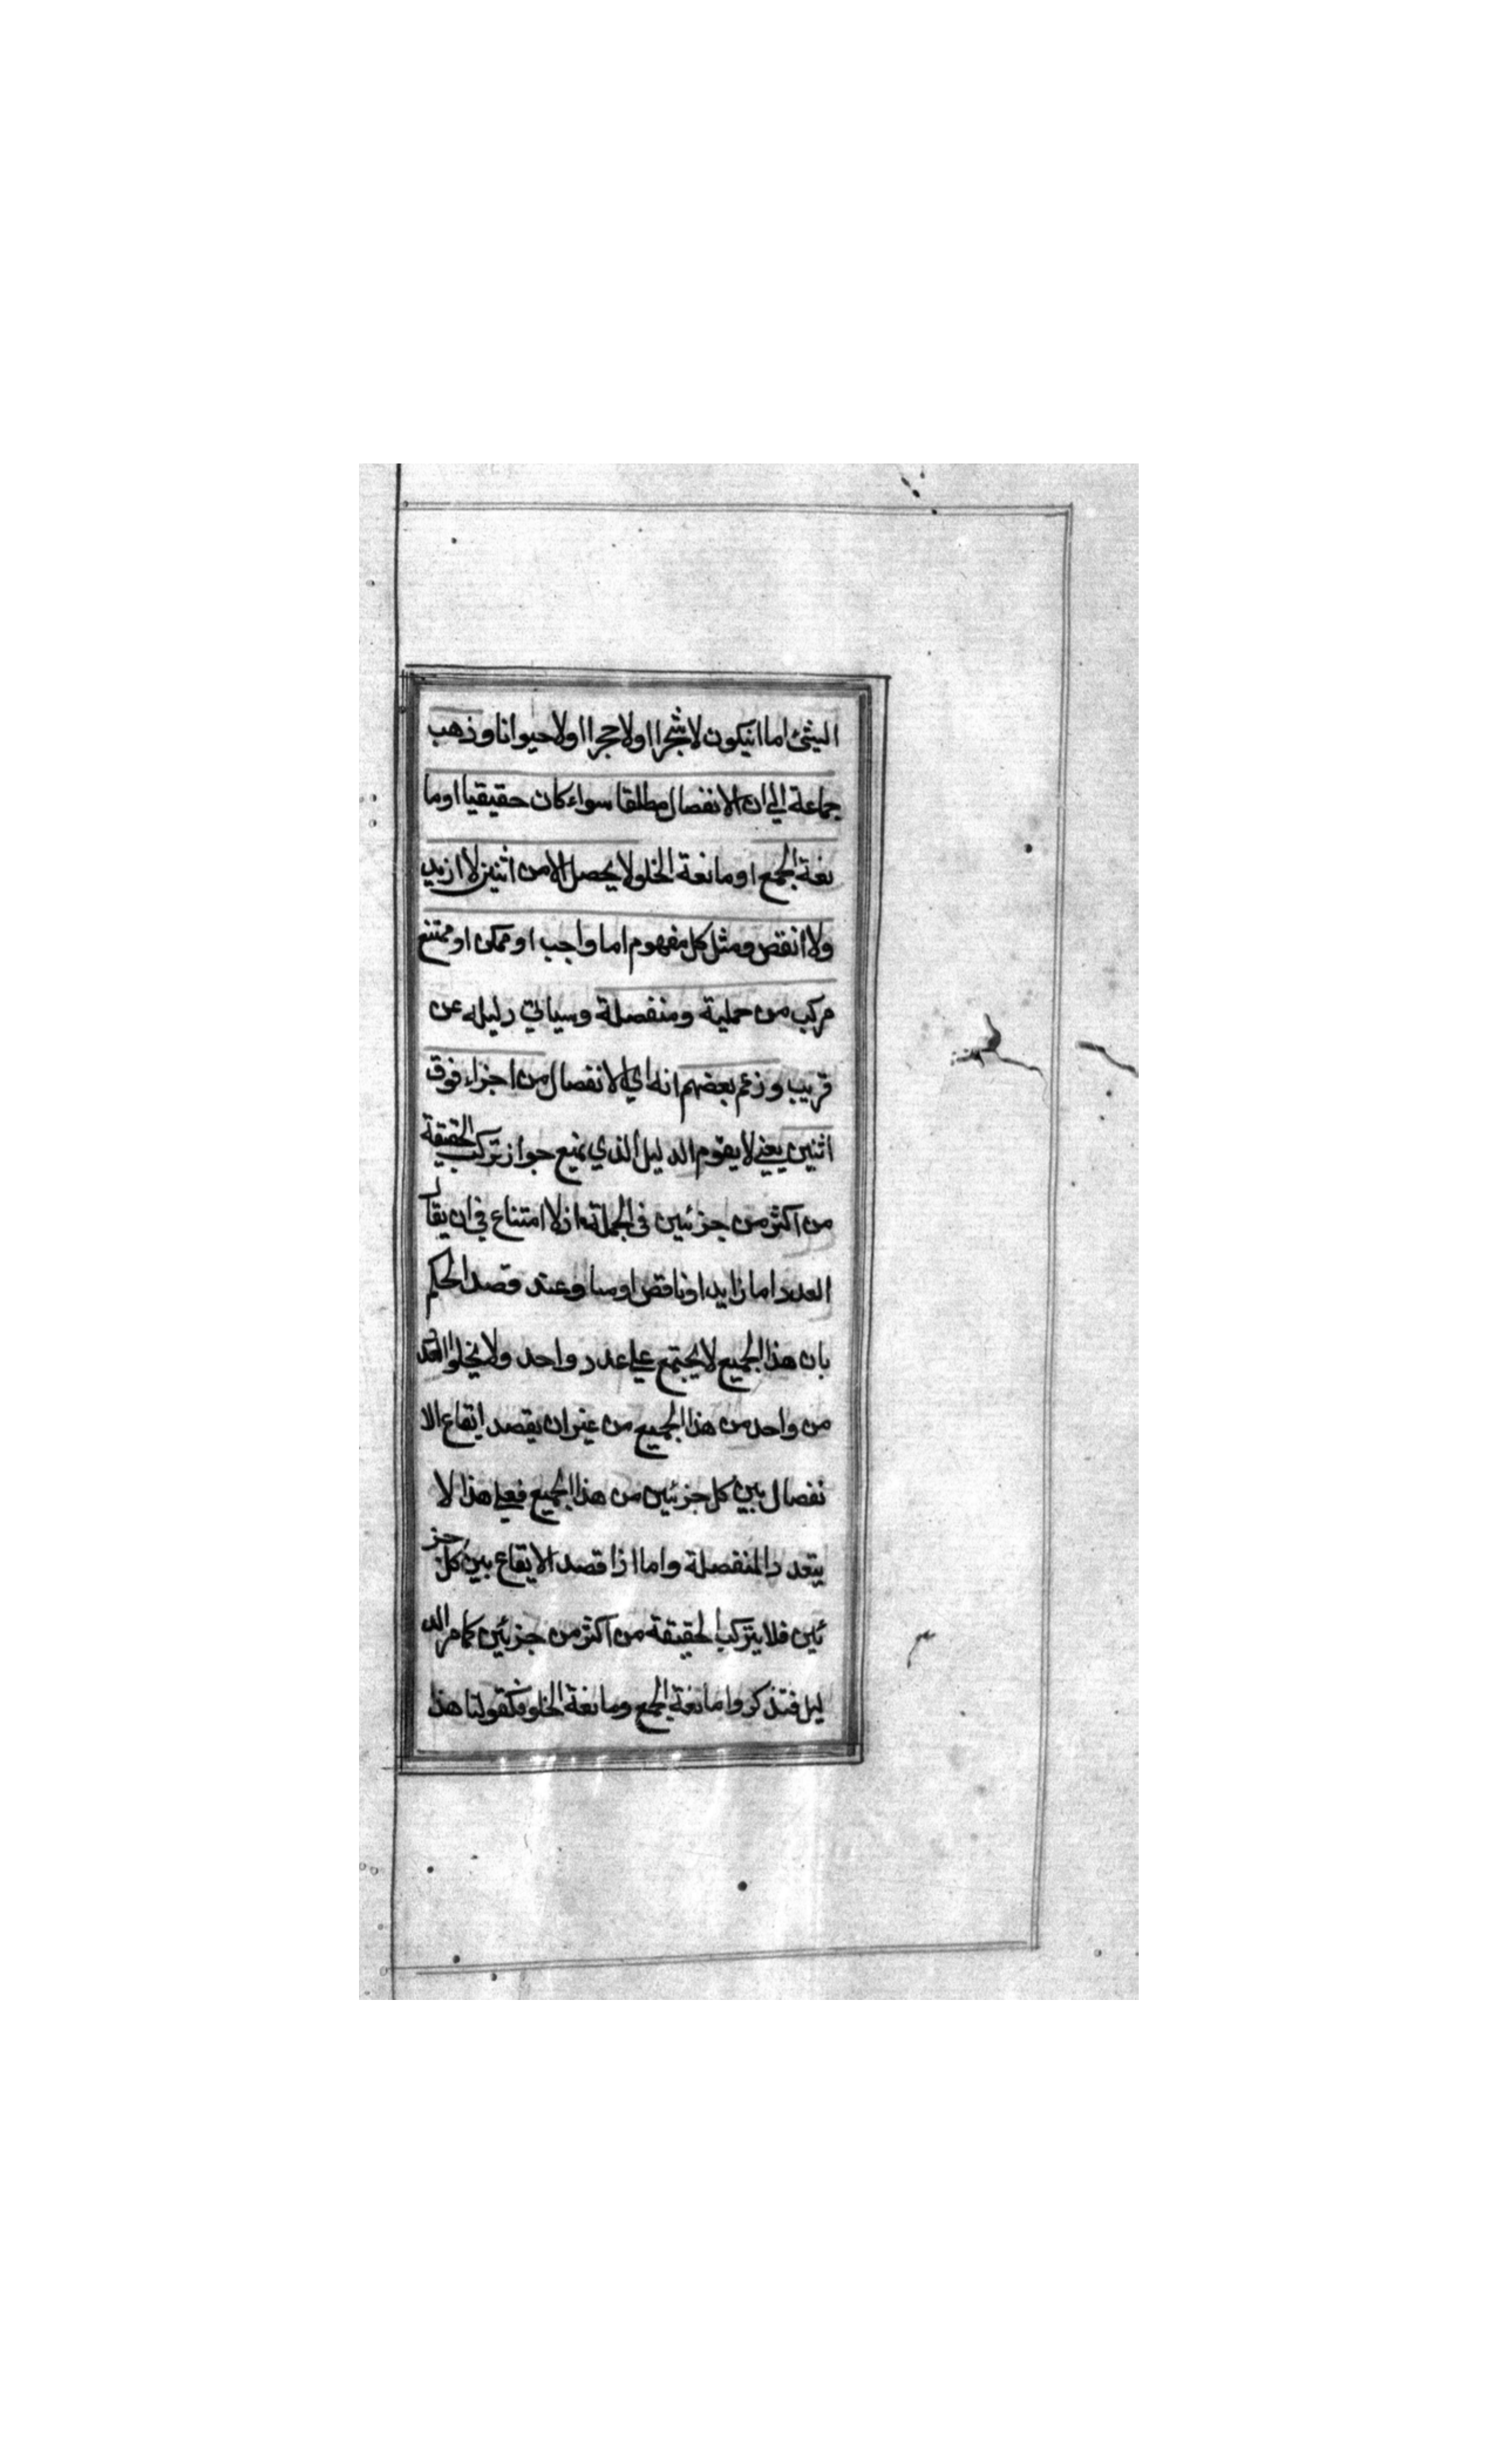 الشئ اما انيكون لا شجرا او لا حجرا او لا حيوانا وذهب
جماعة الي ان الانفصال مطلقا سواء كان حقيقيا او ما
نعة الجمع او مانعة الخلو لا يحصل الا من اثنين لا ازيد
ولا انقص ومثل كل مفهوم اما واجب او ممكن او ممتنع
مركب من حملية ومنفصلة وسياتي دليله عن
قريب وزعم بعضهم انه اي الانفصال من اجزاء فوق
اثنين يعني لا يقوم الدليل الذي يمنع جواز تركب الحقيقة
من اكثر من جزئين في الجملة اذ لا امتناع في ان يقال
العدد اما زايد او ناقص او مساو عند قصد الحكم
بان هذا الجميع لا يجتمع علي عدد واحد ولا يخلو العدد
من واحد من هذا الجميع من غير ان يقصد ايقاع الا
نفصال بين كل جزئين من هذا الجميع فعلي هذا لا
يتعدد المنفصلة واما اذا قصد الايقاع بين كل جز
ئين فلا يتركب الحقيقة من اكثر من جزئين كما مر الد
ليل فتذكر واما نعة الجمع ومانعة الخلو فكقولنا هذا